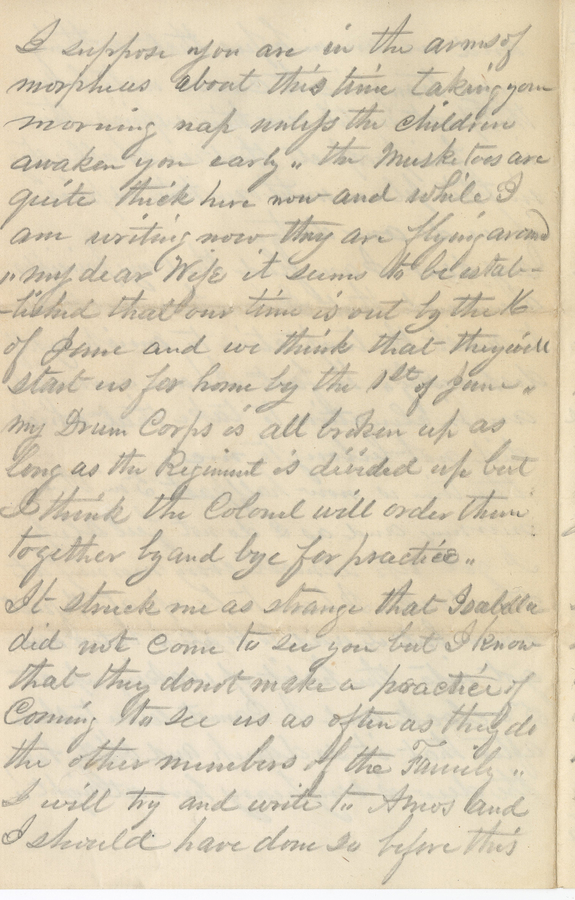 I suppose you are in the arms of
morpheus about this time taking your
morning nap unless the children
awaken you early „ the Musketoes are
quite thick here now and while I
am writing now they are flying around
„ my dear Wife it seems to be estab-
-lished that our time is out by the 16
of June and we think that they will
start us for home by the 1st of June „
my Drum Corps is all broken up as
long as the Regiment is divided up but
I think the Colonel will order them
together by and bye for practice „
It struck me as strange that Isabella
did not come to see you but I know
that they do not make a practice of
Coming to see us as often as they do
the other members of the Family „
I will try and write to Amos and
I should have done so before this